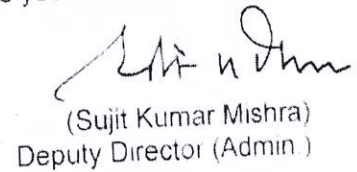 (Sujit Kumar Mishra)
Deputy Director (Admin.)